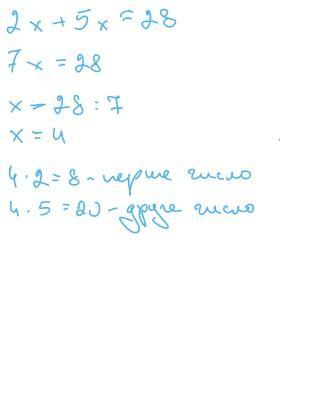 2x + 5x = 28
7x = 28
x - 28 : 7
x = 4
4 · 2 = 8 - перше число
4 · 5 = 20 - друге число